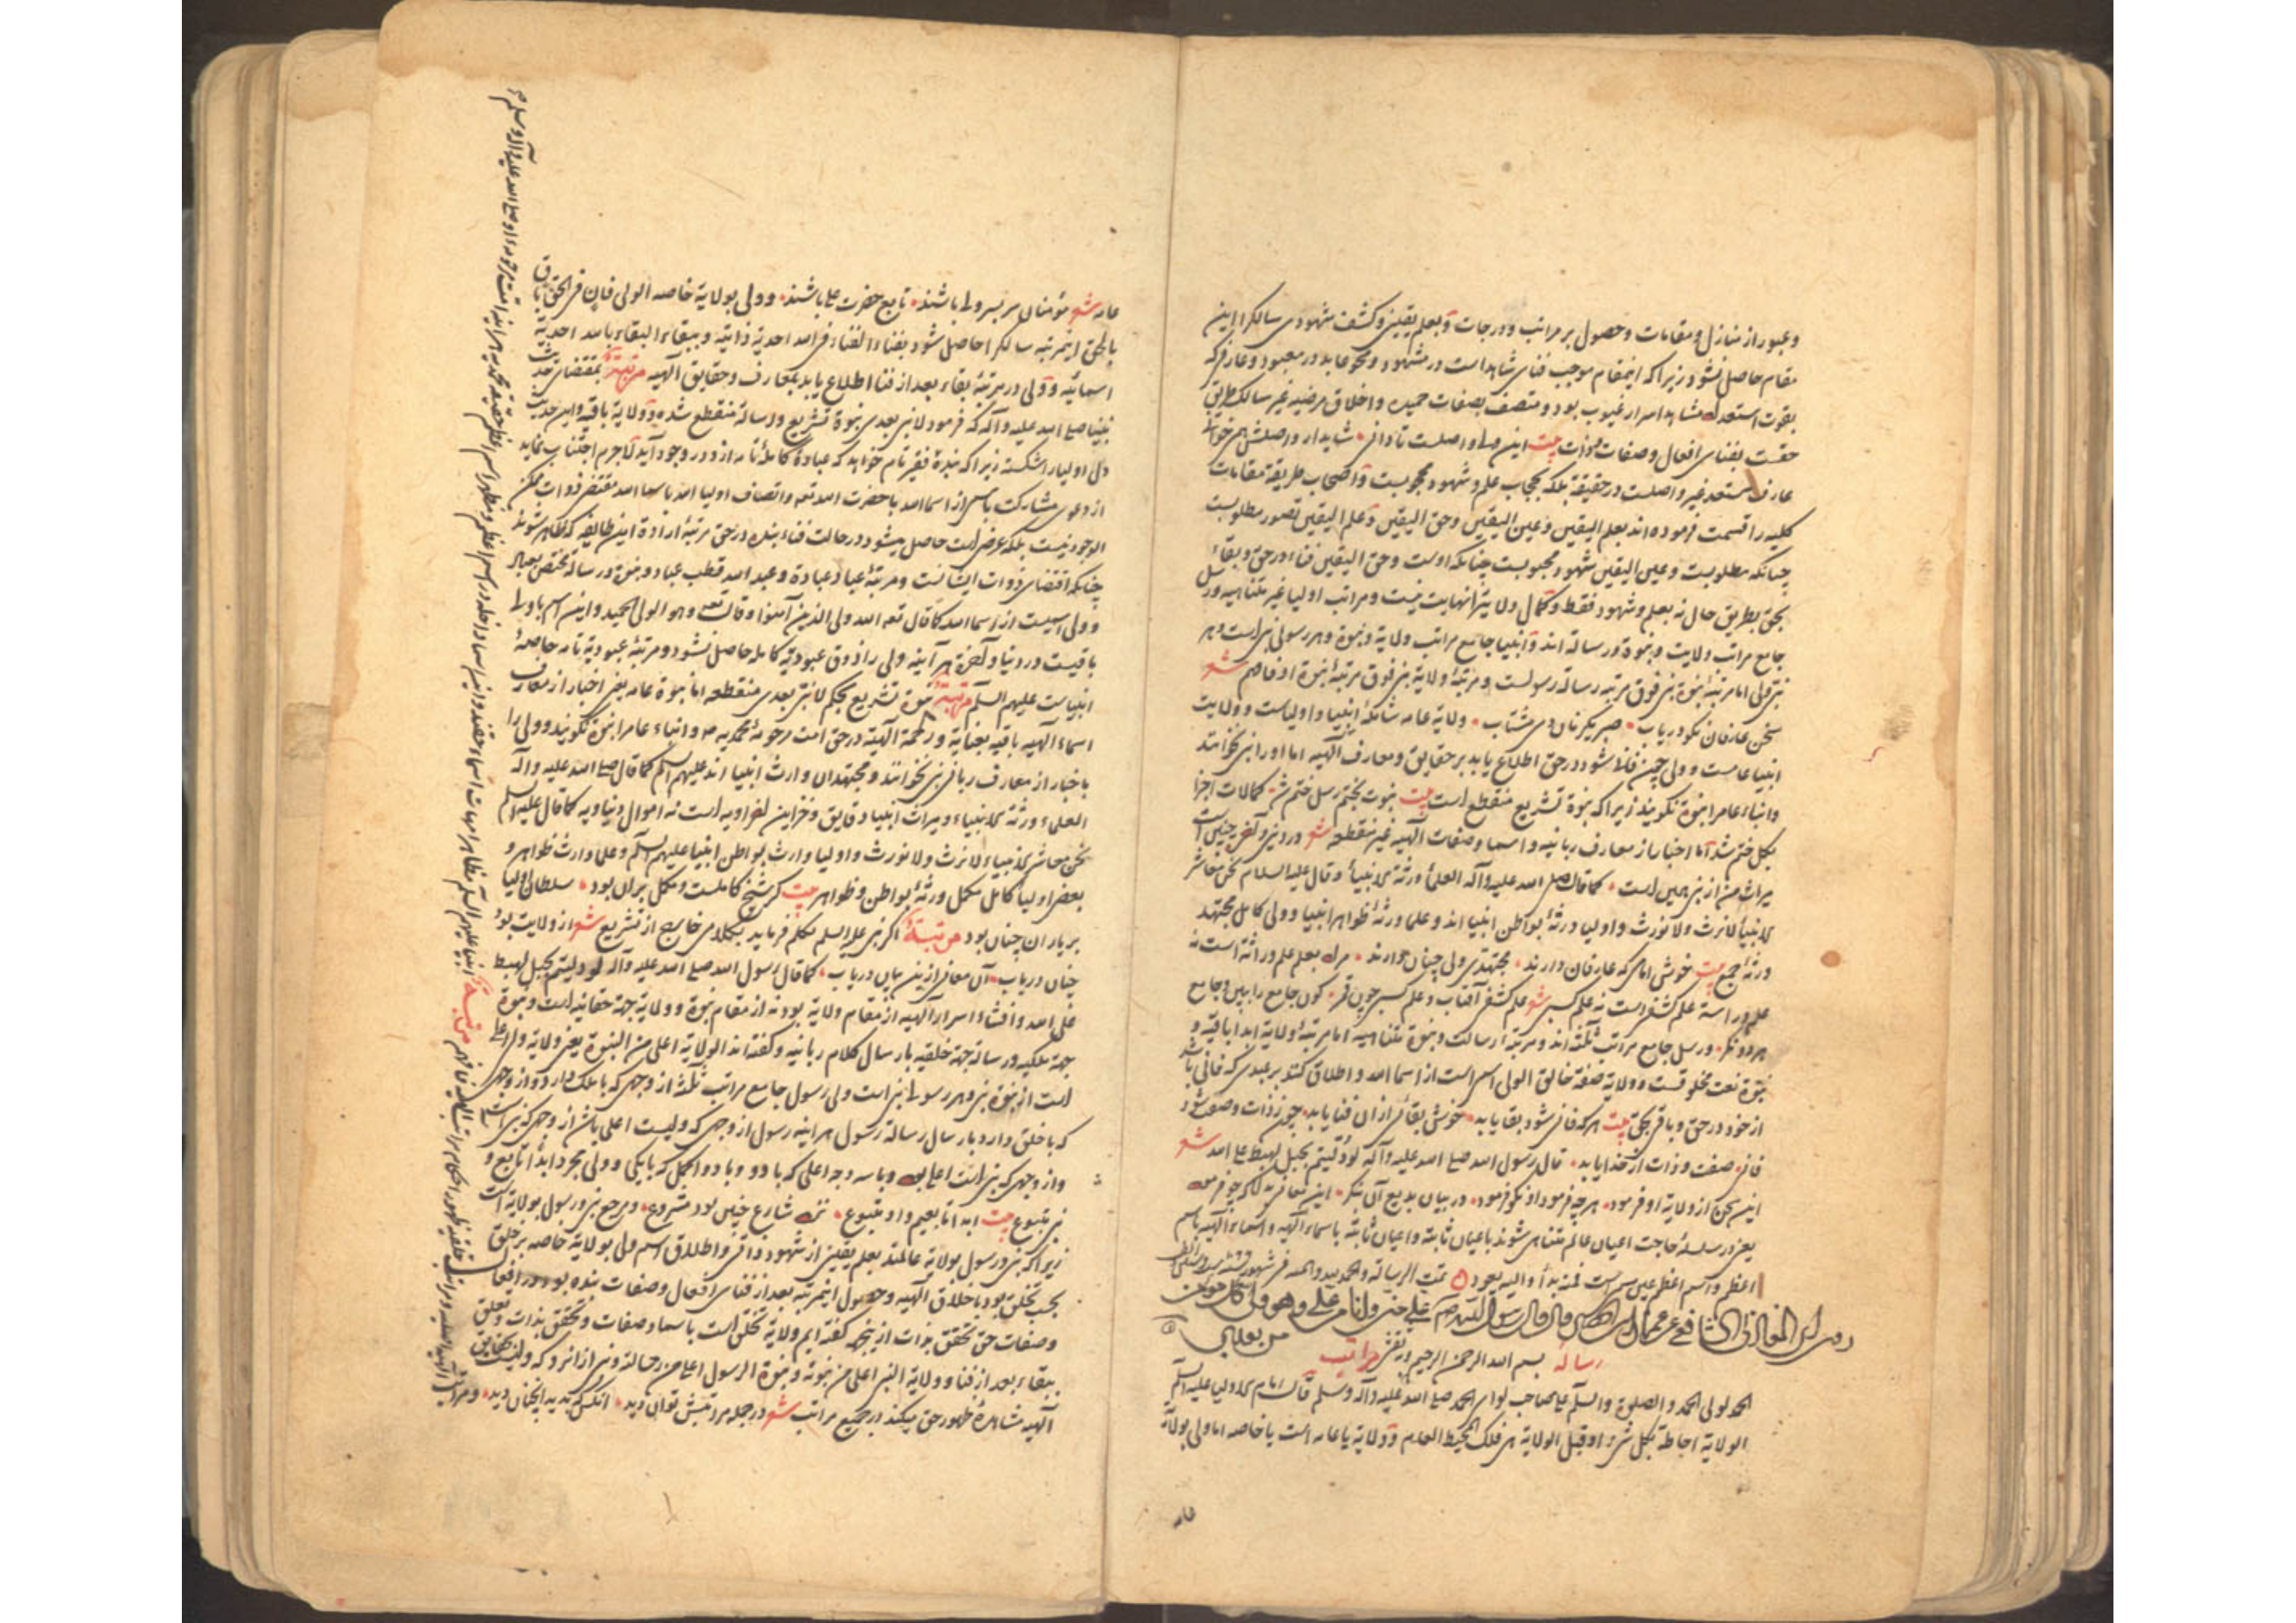 وعبور از منازل و مقامات و حصول بر مراتب و درجات و بعلم یقین و کشف شهودی سالکرا این
مقام حاصل نشود زیرا که اینمقام موجب فنای شاهد است در مشهود و محو عابد در معبود و عارفی که
بقوت استعداد مشاهد اسرار غیوب بود و متصف بصفات حمیده و اخلاق مرضیه غیر سالک طریق
حقست بفنای افعال و صفات و ذات بیت این ولی واصلست تا دانی شاید ار واصلش همی خوانی
عارف مستعد غیر واصلست در حقیقة بلکه بحجاب علم و شهود محجوبست و اصحاب طریقة مقامات
کلیه را قسمت فرموده اند بعلم الیقین و عین الیقین و حق الیقین و علم الیقین تصور مطلوبست
چنانکه مطلوبست و عین الیقین شهود محبوبست چنانکه اوست و حق الیقین فناء در حق و بقاء
بحق بطریق حال نه بعلم و شهود فقط و کمال ولایترا نهایت نیست و مراتب اولیا غیر متناهیه و رسل
جامع مراتب ولایت و نبوة و رسالة اند و انبیا جامع مراتب ولایة و نبوة و هر رسولی نبی است و هر
نبی ولی اما مرتبۀ نبوة نبی فوق مرتبه رسالة رسولست و مرتبۀ ولایة نبی فوق مرتبۀ نبوة او فافهم شعر
سخن عارفان نکو دریاب صبر کن زمان دمی مشتاب ولایة عامه شاملۀ انبیا و اولیاست و ولایت
انبیا عامست و ولی چون فانی شود در حق اطلاع یابد بر حقایق و معارف الهیه اما او را نبی نخوانند
و انباء عام را نبوة نگویند زیرا که نبوة تشریع منقطع است بیت نبوت بختم رسل ختم شد کمالات اجزا
بکل ختم شد اما اخبار از معارف ربانیه و اسما و صفات الهیه غیر منقطعه شعر در دنیی و آخرت چنین است
میراث من از نبی همین است کما قال صلی الله علیه و آله العلماء ورثة الانبیاء و قال علیه السلام نحن معاشر
الانبیاء لا نرث و لا نورث و اولیا ورثۀ بواطن انبیا اند و علما ورثۀ ظواهر انبیا و ولی کامل مجتهد
ورثۀ جمیع بیت خوشی امامی که عارفان دارند مجتهدی ولی چنان دارند مراد بعلم علم وراثة است نه
علم دراسة علم کشفی است نه علم کسبی شعر علم کشفی آفتاب و علم کسبی چون قمر کون جامع را ببین و جامع
هر دو نگر و رسل جامع مراتب ثلثه اند و مرتبۀ رسالت و نبوة متناهیه اما مرتبۀ ولایة ابدا باقیة و
نبوة نعت مخلوقست و ولایة صفة خالق الولی اسم است از اسما الله و اطلاق کنند بر عبدی که فانی باشد
از خود در حق و باقی بحق بیت هر که فانی شود بقا یابد خوش بقائی از ان فنا یابد چون ز ذات و صفت شود
فانی صفت و ذات از خدا یابد قال رسول الله صلی الله علیه و آله لو دلیتم بحبل لهبط علی الله شعر
این سخن از ولایة او فرمود هر چه فرمود او نکو فرمود در بیان بدیع آن بنگر این معانی
یعنی در سلسلۀ حاجت اعیان عالم متناهی شوند باعیان ثابته و اعیان ثابته باسماء الهیه و اسماء الهیه باسم
اعظم و اسم اعظم عین مسمی است فمنه بدأ و الیه یعود تمت الرسالة و الحمد لله وحده
روی ابن المغازلی الشافعی قال قال رسول الله علی منی و انا من علی و هو ولی کل مؤمن
من بعدی
رسالۀ مراتب
بسم الله الرحمن الرحیم و به نستعین
الحمد لولی الحمد و الصلوة و السلم علی صاحب لواء الحمد صلی الله علیه و آله و سلم قال امام الاولیا علیه السلم
الولایة احاطة بکل شیء و قیل الولایة هی فلک المحیط العام و ولایة یا عامه است یا خاصه اما ولی بولایة
عامه شعر مؤمنان سر بسر ولی باشند تابع حضرت علی باشند و ولی بولایة خاصه الولی فان فی الحق باق
بالحق اینمرتبه سالکرا حاصل شود بفناء الفناء فی الله احدیة ذاتیة و ببقاء البقاء بالله احدیة
اسمائیه و ولی در مرتبۀ بقاء بعد از فنا اطلاع یابد بمعارف و حقایق الهیه مرتبة بمقتضای حدیث
نبینا صلی الله علیه و آله که فرمود لا نبی بعدی نبوة تشریع و رسالة منقطع شده و ولایة باقیه و این حدیث
دل اولیا را شکسته زیرا که بندۀ فقیر تام خواهد که عبادۀ کاملۀ تامه از و در وجود آید لاجرم اجتناب نماید
از دعوی مشارکت باسمی از اسما الله با حضرت الله تعه و اتصاف اولیا الله باسما الله مقتضی ذوات ممکن
الوجود نیست بلکه عرضی است حاصل میشود در حالت فناء بنده در حق مرتبۀ ارادة این طایفه که ظاهر شوند
چنانکه اقتضای ذوات ایشانست و مرتبۀ عباد عبادة و عبد الله قطب عباد و نبوة و رسالة مختص بعباد
و ولی اسمیست از اسما الله کما قال تعه الله ولی الذین آمنوا و قال تعه و هو الولی الحمید و این اسم باولیا
باقیست در دنیا و آخرة هر آینه ولی را ذوق عبودیة کامله حاصل نشود و مرتبۀ عبودیة تامه خاصۀ
انبیاست علیهم السلم مرتبة نبوة تشریع بحکم لا نبی بعدی منقطعه اما نبوة عامه یعنی اخبار از معارف
اسماء الهیه باقیه بعنایة و رحمة الهیة در حق امت مرحومۀ محمدیه ص و انباء عام را نبوة نگویند و ولی را
باخبار از معارف ربانی نبی نخوانند و مجتهدان وارث انبیا اند علیهم السلم کما قال صلی الله علیه و آله
العلماء ورثة الانبیاء و میراث انبیا دقایق و خزاین اخراویه است نه اموال دنیاویه کما قال علیه السلم
نحن معاشر الانبیاء لا نرث و لا نورث و اولیا وارث بواطن انبیا علیهم السلم و علما وارث ظواهر و
بعضی اولیا کامل مکمل ورثۀ بواطن و ظواهر بیت گر شیخ کاملست و مکمل بر آن بود سلطان اولیا
بر یاران چنان بود مرتبة اگر نبی علیه السلم تکلم فرماید بکلامی خارج از تشریع شعر از ولایت بود
چنان دریاب آن معانی ازین بیان دریاب کما قال رسول الله صلی الله علیه و آله لو دلیتم بحبل لهبط
علی الله و افشاء اسرار الهیه از مقام ولایة بود نه از مقام نبوة و ولایة جهة حقانیه است و نبوة
جهة ملکیه و رسالة جهة خلقیه بارسال کلام ربانیه و گفته اند الولایة اعلی من النبوة یعنی ولایة ولی اعلی
است از نبوة نبی و هر رسولی نبی است ولی رسول جامع مراتب ثلثه از وجهی که با ملک دارد و از وجهی
که با خلق دارد بارسال رسالة رسول هر اینه رسول از وجهی که ولیست اعلی باشد از وجهی که نبی است
و از وجهی که نبی است اعلی بود و با سه وجه اعلی که با دو و با دو اکمل که با یکی و ولی مجرد ابدا تابع و
نبی متبوع بیت ابدا تابعیم و او متبوع نزد شارع چنین بود مشروع و مرجع نبی و رسول بولایة است
زیرا که نبی و رسول بولایة عالمند بعلم یقین از شهود ذاتی و اطلاق اسم ولی بولایة خاصه بر خلق
بحسب تخلق بود باخلاق الهیه و حصول اینمرتبه بعد از فنای افعال و صفات بنده بود در افعال
و صفات حق تحقق بذات ازینجهة گفته ایم ولایة تخلق است باسما و صفات و تحقق بذات و تعلق
ببقاء بعد از فنا و ولایة النبی اعلی من نبوته و نبوة الرسول اعلی من رسالته و نبی از انرو که ولیست بحقایق
الهیه مشاهدۀ ظهور حق میکند در جمیع مراتب شعر در جمله مراتبش توان دید آنکس که بدید آنچنان دید و مراتب
الهیه اصلیه و مراتب خلقیه ظهور احکام مراتب الهیه فافهم مرتبة انبیا علیهم السلم مظاهر امهات اسماء حقند و این اسما داخله در اسم اعظم و مظهر اسم اعظم حقیقة محمدیه هر اینه امت مرحومه او صلی الله علیه و آله و سلم